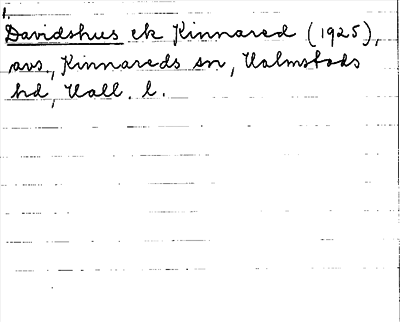 1.
Davidshus ek Kinnared (1925),
avs., Kinnareds sn, Halmstads
hd, Hall. l.